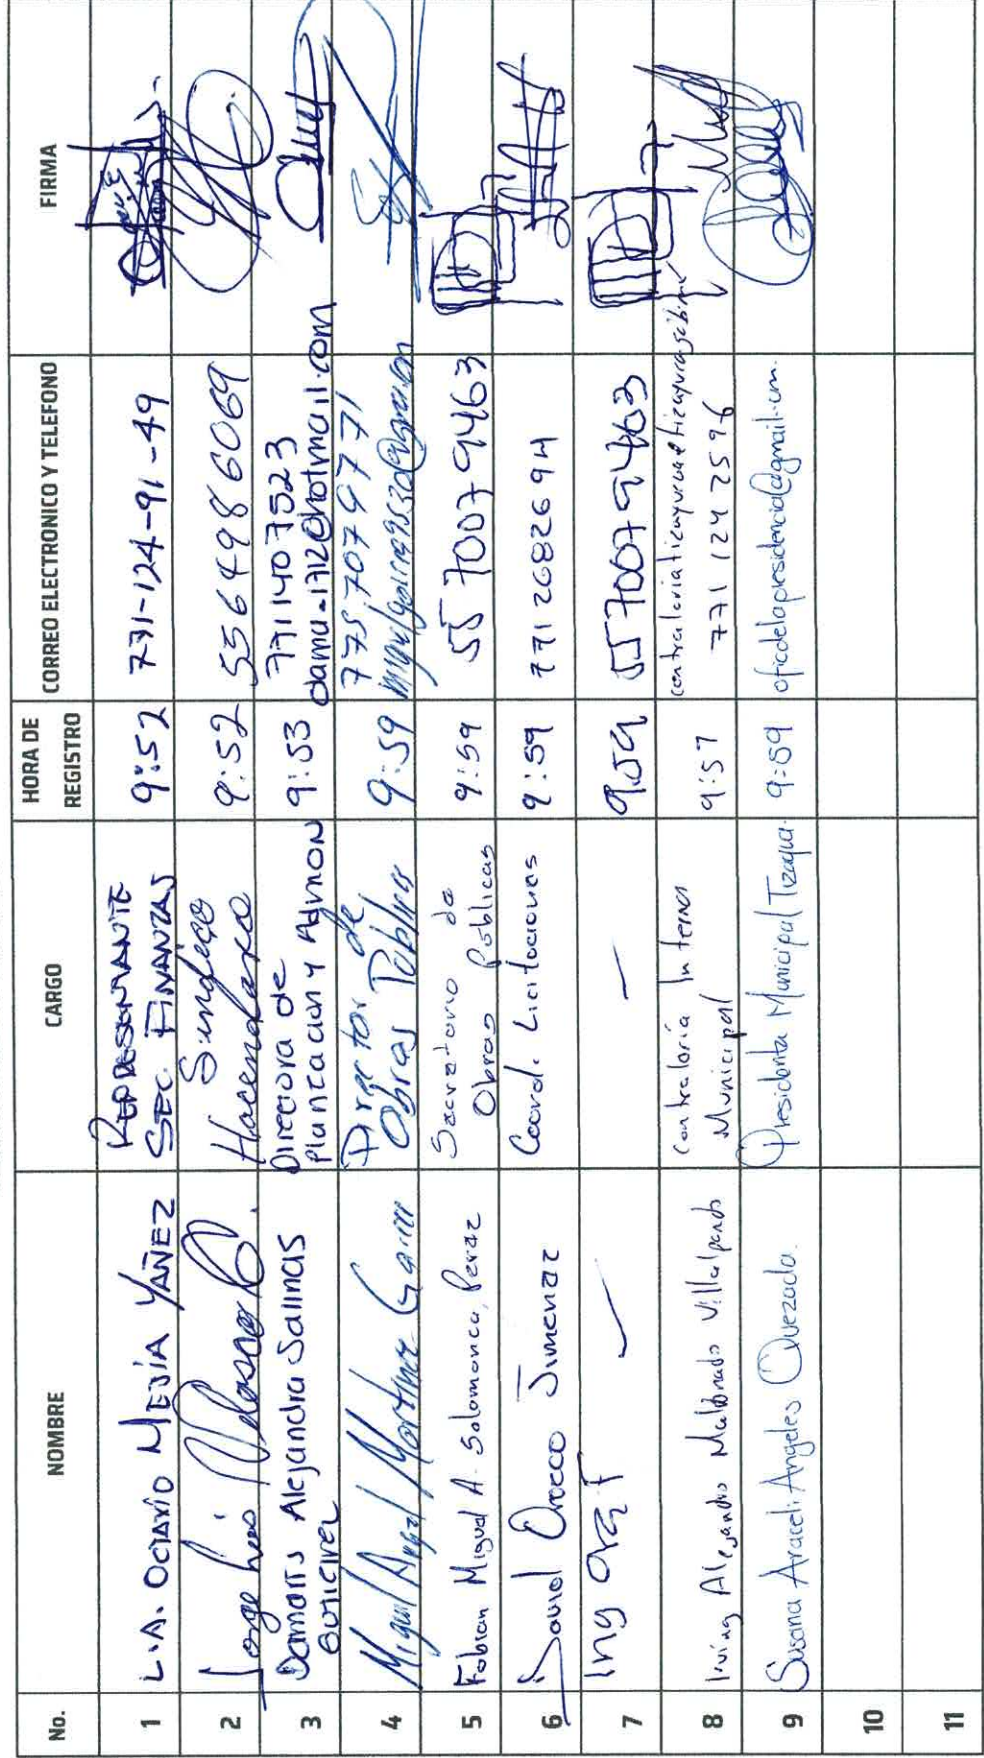 No. NOMBRE CARGO HORA DE REGISTRO CORREO ELECTRONICO Y TELEFONO FIRMA
1 L.A. OCTAVIO MEJÍA YAÑEZ REPRESENTANTE SEC. FINANZAS 9:52 771-124-91-49
2 Jorge Luis Velasco Sindico Hacendario 9:52 5564986069
3 Damaris Alejandra Salinas Directora de Planeacion y Admon 9:53 7711407523
4 Miguel Angel Martinez Garcia Director de Obras Publicas 9:59 7757079771
5 Fabian Miguel A. Salamanca Perez Secretario de Obras Públicas 9:59 5570079463
6 David Orozco Jimenez Coord. Licitaciones 9:59 7712682694
7 Ing — 9:59 5570079463
8 Irving Alejandro Maldonado Villalpando Contraloría Interna Municipal 9:57 7711242596
9 Susana Araceli Angeles Quezada. Presidenta Municipal Tizayuca. 9:59 oficdelapresidencia@gmail.com.
10
11